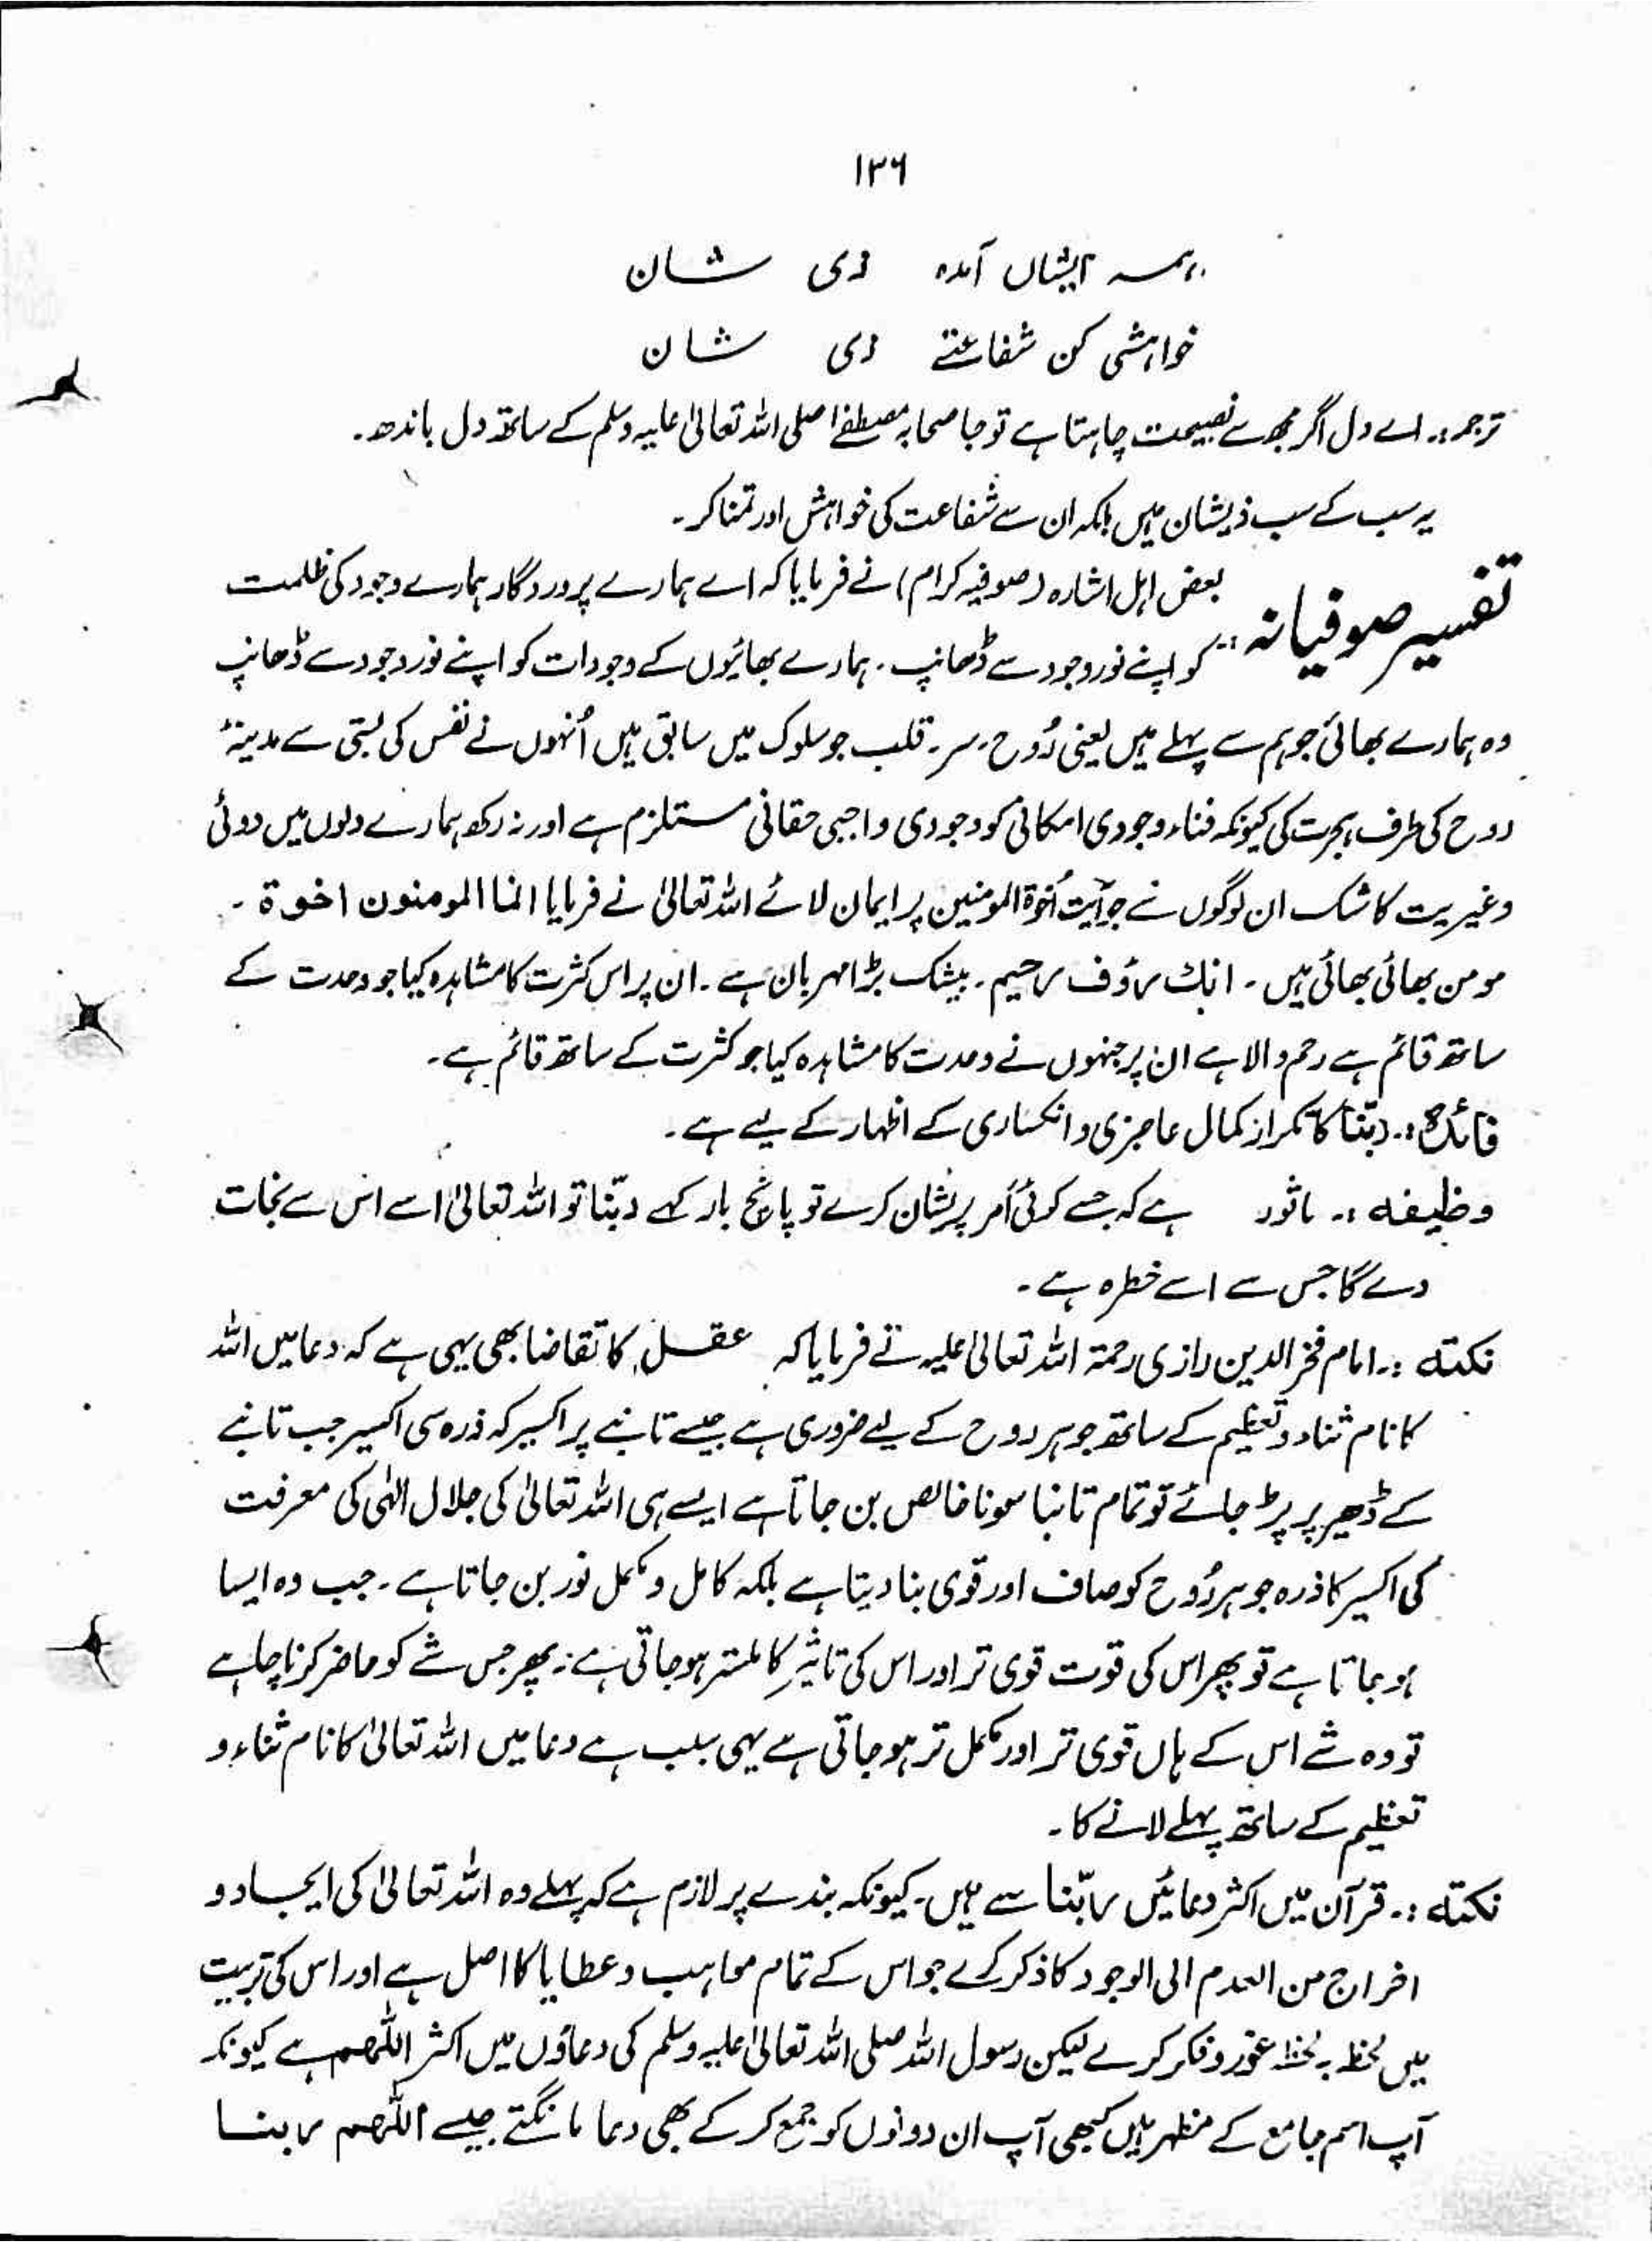 ۱۳۶
ہمہ ایشاں آمدہ ذی شان
خواہشی کن شفاعتے ذی شان
ترجمہ:۔ اے دل اگر مجھ سے نصیحت چاہتا ہے تو جا صحابہ مصطفےٰ صلی اللہ تعالیٰ علیہ وسلم کے ساتھ دل باندھ۔
یہ سب کے سب ذیشان ہیں بلکہ ان سے شفاعت کی خواہش اور تمنا کر۔
تفسیر صوفیانہ :۔ بعض اہل اشارہ (صوفیہ کرام) نے فرمایا کہ اے ہمارے پروردگار ہمارے وجود کی ظلمت
کو اپنے نور وجود سے ڈھانپ۔ ہمارے بھائیوں کے وجودات کو اپنے نور وجود سے ڈھانپ
وہ ہمارے بھائی جو ہم سے پہلے ہیں یعنی رُوح۔ سر۔ قلب جو سلوک میں سابق ہیں اُنہوں نے نفس کی بستی سے مدینۂ
روح کی طرف ہجرت کی کیونکہ فناء وجودی امکانی کو وجودی واجبی حقانی مستلزم ہے اور نہ رکھ ہمارے دلوں میں دوئی
و غیریت کا شک ان لوگوں سے جو آیت اُخوۃ المومنین پر ایمان لائے اللہ تعالیٰ نے فرمایا انما المومنون اخوۃ ۔
مومن بھائی بھائی ہیں۔ انك رؤف رحیم۔ بیشک بڑا مہربان ہے۔ ان پر اس کثرت کا مشاہدہ کیا جو وحدت کے
ساتھ قائم ہے رحم والا ہے ان پر جنہوں نے وحدت کا مشاہدہ کیا جو کثرت کے ساتھ قائم ہے۔
فائدہ :۔ ربّنا کا تکرار کمال عاجزی و انکساری کے اظہار کے لیے ہے۔
وظیفہ :۔ ماثور ہے کہ جسے کوئی اَمر پریشان کرے تو پانچ بار کہے ربّنا تو اللہ تعالیٰ اسے اس سے نجات
دے گا جس سے اسے خطرہ ہے۔
نکتہ :۔ امام فخر الدین رازی رحمۃ اللہ تعالیٰ علیہ نے فرمایا کہ عقل کا تقاضا بھی یہی ہے کہ دعا میں اللہ
کا نام ثناء و تعظیم کے ساتھ جوہر روح کے لیے ضروری ہے جیسے تانبے پر اکسیر کہ ذرہ سی اکسیر جب تانبے
کے ڈھیر پر پڑ جائے تو تمام تانبا سونا خالص بن جاتا ہے ایسے ہی اللہ تعالیٰ کی جلال الہٰی کی معرفت
کی اکسیر کا ذرہ جوہر رُوح کو صاف اور قوی بنا دیتا ہے بلکہ کامل و مکمل نور بن جاتا ہے۔ جب وہ ایسا
ہو جاتا ہے تو پھر اس کی قوت قوی تر اور اس کی تاثیر کا ہو جاتی ہے۔ پھر جس شے کو حاضر کرنا چاہے
تو وہ شے اس کے ہاں قوی تر اور مکمل تر ہو جاتی ہے یہی سبب ہے دعا میں اللہ تعالیٰ کا نام ثناء و
تعظیم کے ساتھ پہلے لانے کا۔
نکتہ :۔ قرآن میں اکثر دعائیں ربّنا سے ہیں۔ کیونکہ بندے پر لازم ہے کہ پہلے وہ اللہ تعالیٰ کی ایجاد و
اخراج من العدم الی الوجود کا ذکر کرے جو اس کے تمام مواہب و عطایا کا اصل ہے اور اس کی تربیت
میں لحظہ بہ لحظہ غور و فکر کرے لیکن رسول اللہ صلی اللہ تعالیٰ علیہ وسلم کی دعاؤں میں اکثر اللّٰھم ہے کیونکہ
آپ اسم جامع کے مظہر ہیں کبھی آپ ان دونوں کو جمع کر کے بھی دعا مانگتے جیسے اللّٰھم ربنا